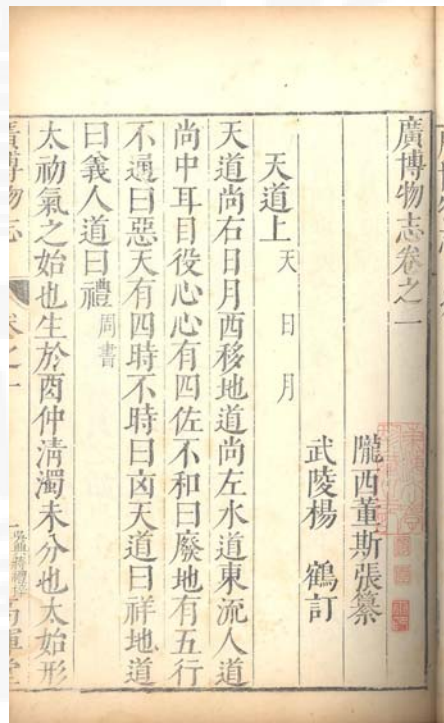 廣博物志卷之一
隴西董斯張纂
武陵楊 鶴訂
天道上 天 日 月
天道尚右日月西移地道尚左水道東流人道
尚中耳目役心心有四佐不和曰廢地有五行
不通曰惡天有四時不時曰凶天道曰祥地道
曰義人道曰禮 周書
太初氣之始也生於酉仲清濁未分也太始形
廣博物志 卷之一